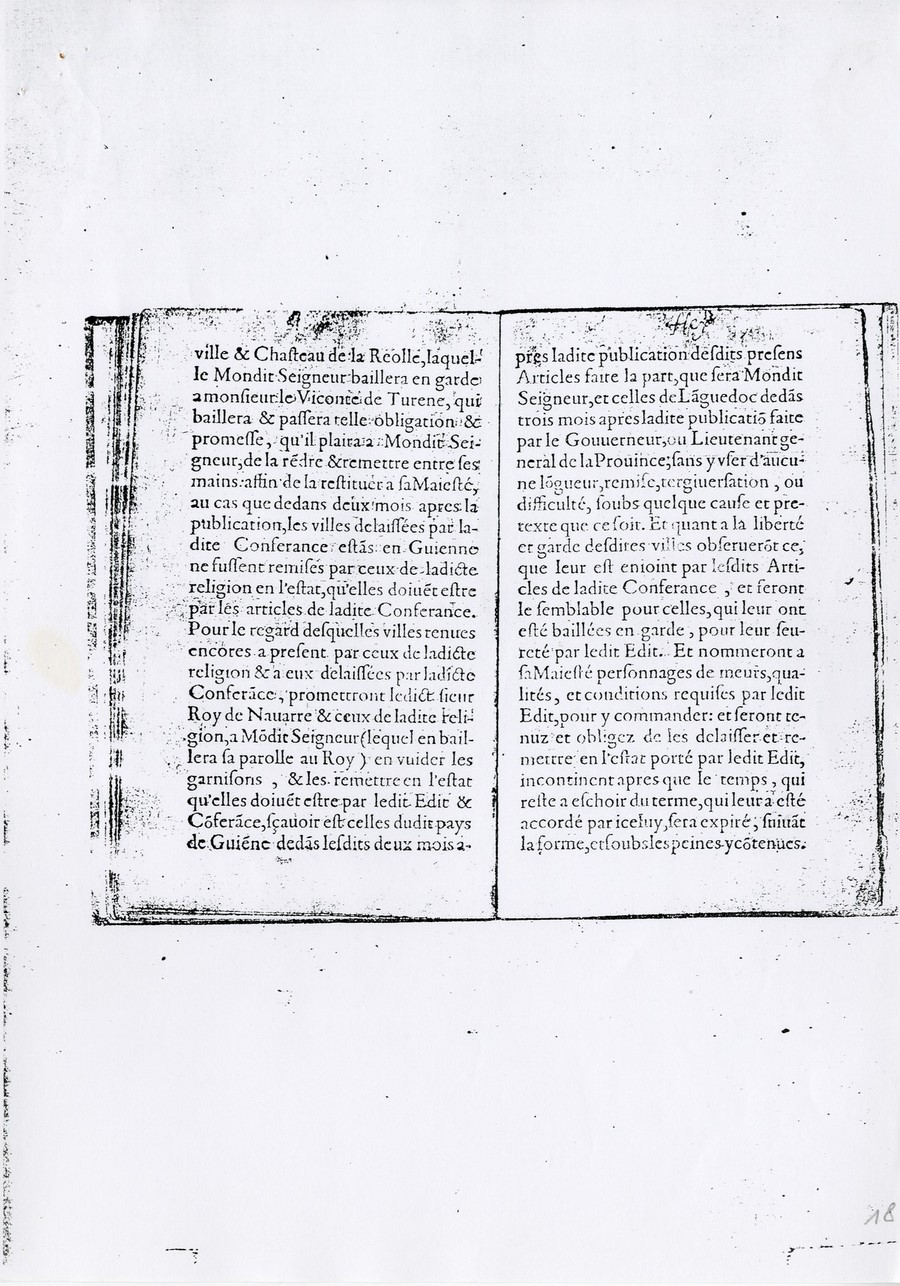 ville & Chaſteau de la Reolle, laquel-
le Mondit Seigneur baillera en garde
a monſieur le Viconte de Turene, qui
baillera & paſſera telle obligation &
promeſſe, qu'il plaira a Mondit Sei-
gneur, de la rẽdre & remettre entre ſes
mains affin de la reſtituer a ſa Maieſté,
au cas que dedans deux mois apres la
publication, les villes delaiſſées par la-
dite Conferance eſtãs en Guienne
ne fuſſent remiſes par ceux de ladicte
religion en l'eſtat, qu'elles doiuẽt eſtre
par les articles de ladite Conferance.
Pour le regard deſquelles villes tenues
encores a preſent par ceux de ladicte
religion & a eux delaiſſées par ladicte
Conferãce, promettront ledict ſieur
Roy de Nauarre & ceux de ladite reli-
gion, a Mõdit Seigneur (lequel en bail-
lera ſa parolle au Roy) en vuider les
garniſons, & les remettre en l'eſtat
qu'elles doiuẽt eſtre par ledit Edit &
Cõferãce, ſçauoir eſt celles dudit pays
de Guiẽne dedãs leſdits deux mois a-
pres ladite publication deſdits preſens
Articles faite la part, que ſera Mondit
Seigneur, et celles de Lãguedoc dedãs
trois mois apres ladite publicatiõ faite
par le Gouuerneur, ou Lieutenant ge-
neral de la Prouince; ſans y vſer d'aucu-
ne lõgueur, remiſe, tergiuerſation, ou
difficulté, ſoubs quelque cauſe et pre-
texte que ce ſoit. Et quant a la liberté
et garde deſdites villes obſeruerõt ce,
que leur eſt enioint par leſdits Arti-
cles de ladite Conferance, et feront
le ſemblable pour celles, qui leur ont
eſté baillées en garde, pour leur ſeu-
reté par ledit Edit. Et nommeront a
ſa Maieſté perſonnages de meurs, qua-
lités, et conditions requiſes par ledit
Edit, pour y commander: et ſeront te-
nuz et obligez de les delaiſſer et re-
mettre en l'eſtat porté par ledit Edit,
incontinent apres que le temps, qui
reſte a eſchoir du terme, qui leur a eſté
accordé par iceluy, ſera expiré, ſuiuãt
la forme, et ſoubs les peines y cõtenues.
18